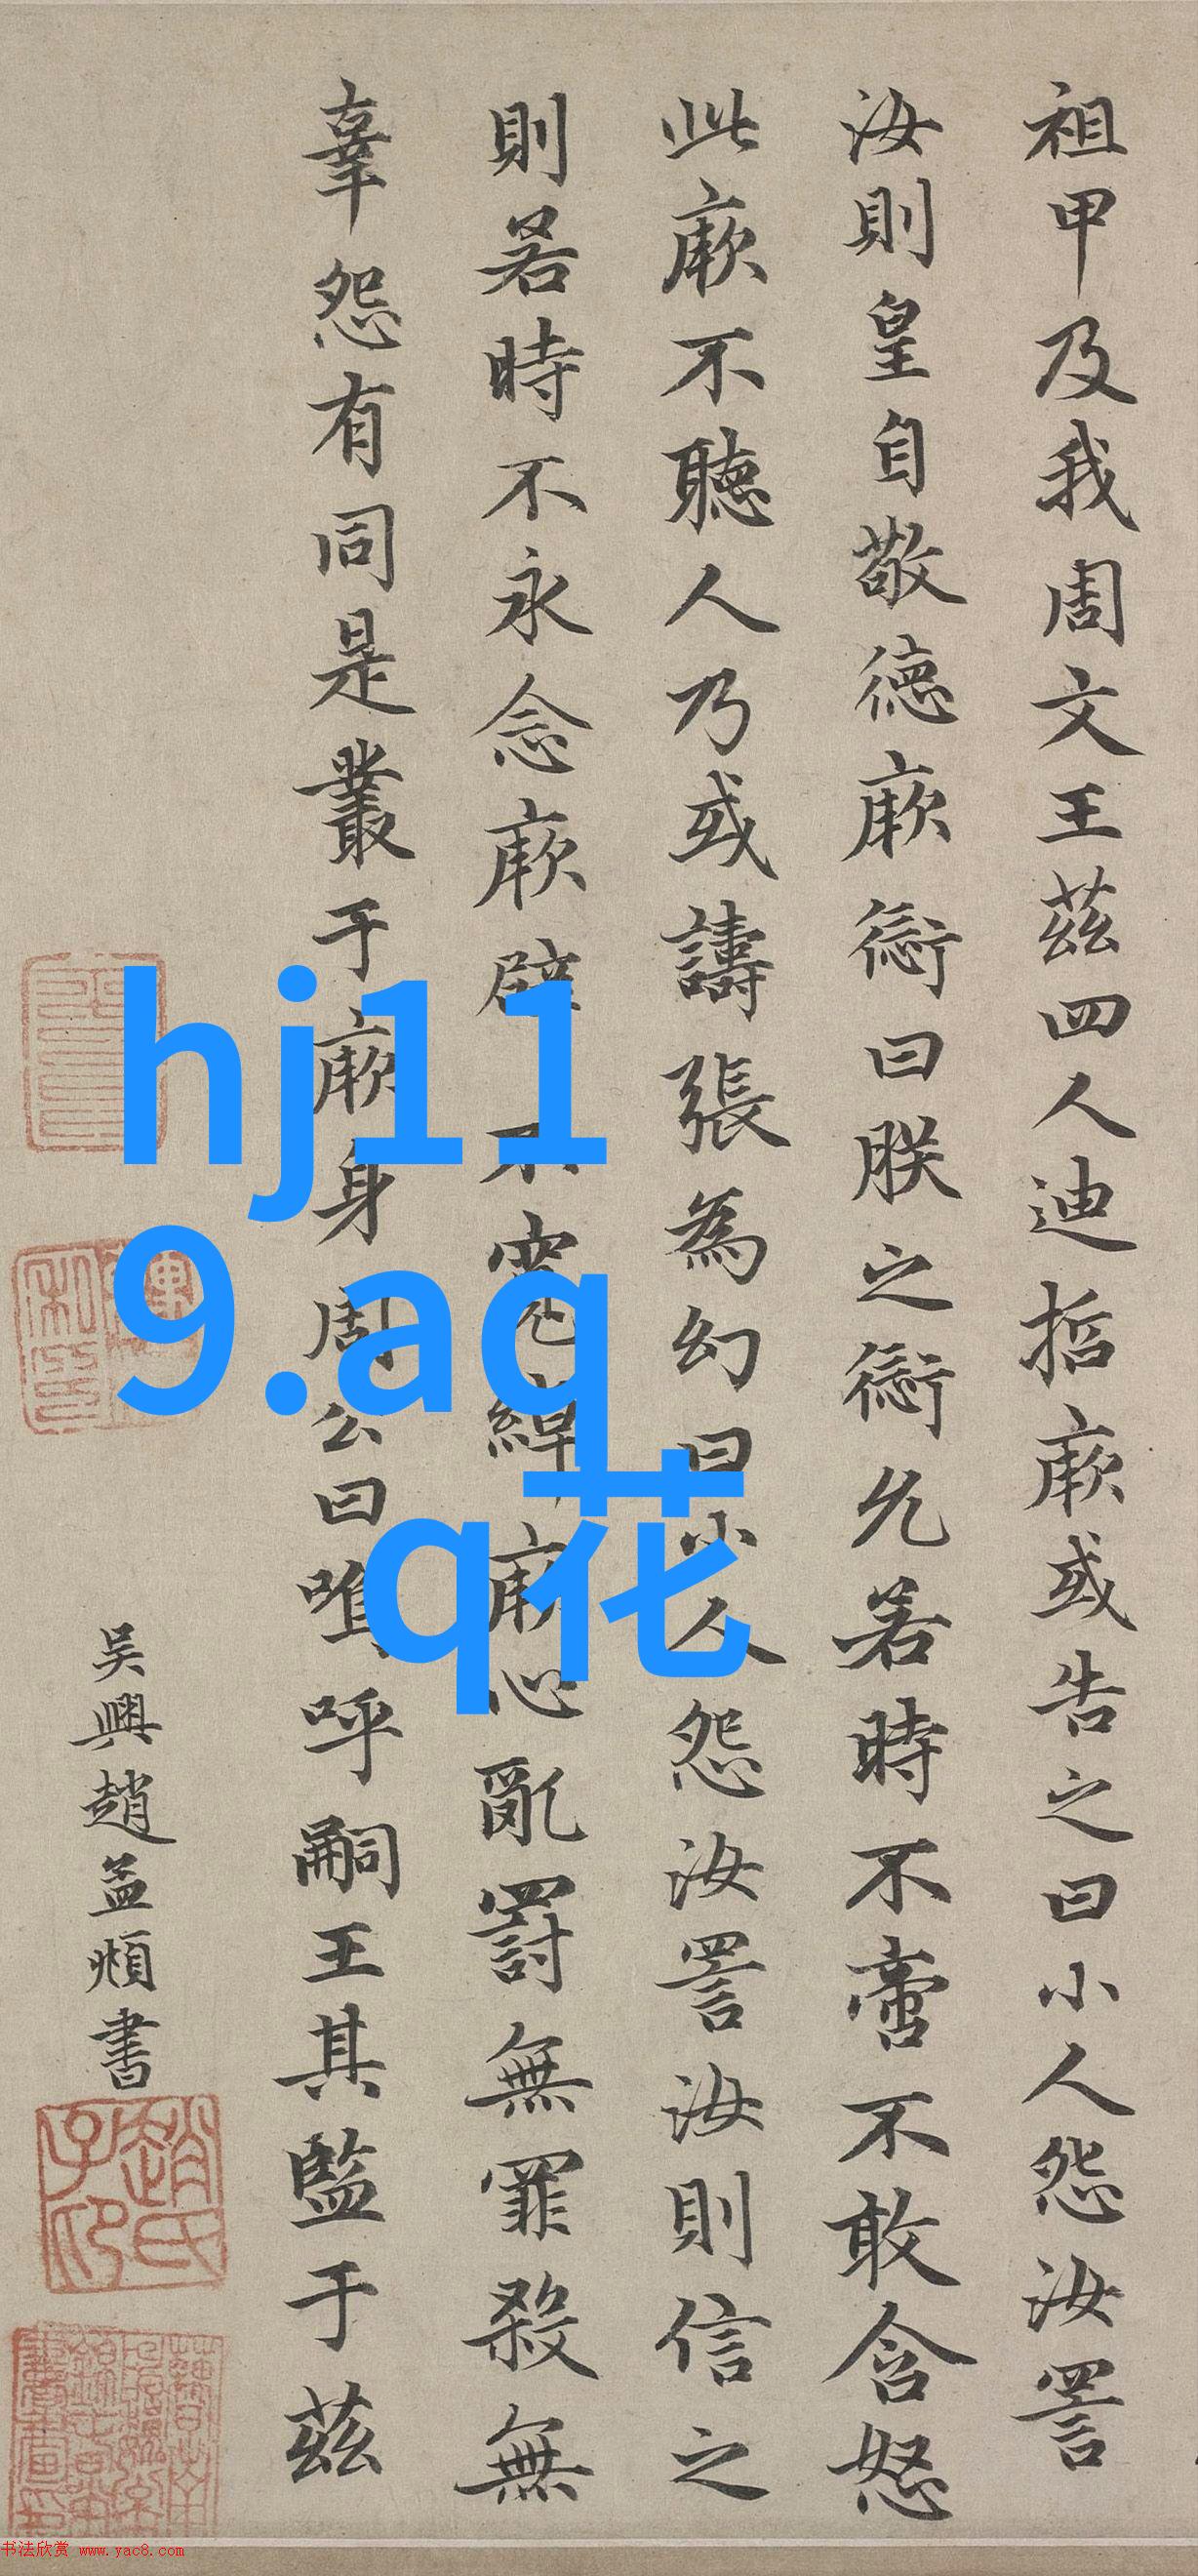 祖甲及我周文王茲四人迪哲厥或告之曰小人怨汝詈
汝則皇自敬德厥愆曰朕之愆允若時不啻不敢含怒
此厥不聽人乃或譸張為幻曰小人怨汝詈汝則信之
則若時不永念厥辟不寬綽厥心亂罰無罪殺無
辜怨有同是叢于厥身周公曰嗚呼嗣王其監于茲
吳興趙孟頫書
趙氏子昂
hj11
9.aq
q花
书法欣赏 www.yac8.com